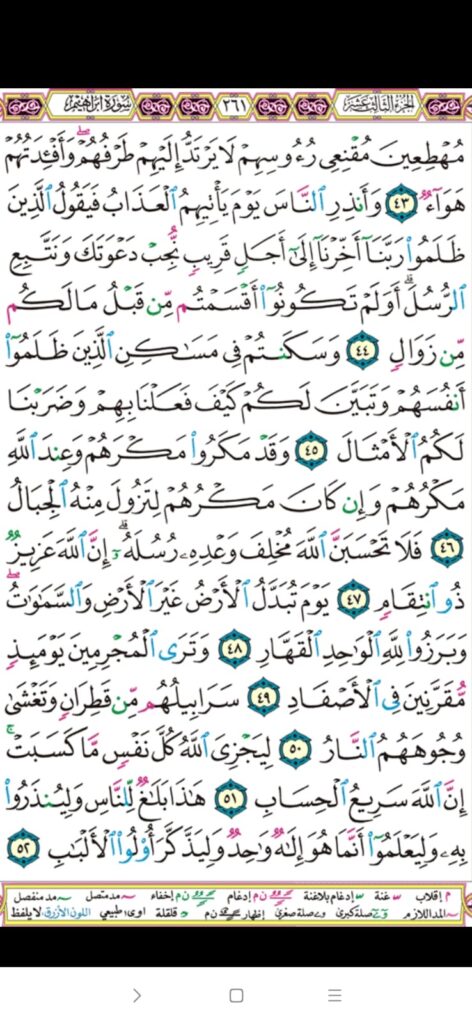 الجزء الثالث عشر ٢٦١ سورة ابراهيم
مُهْطِعِينَ مُقْنِعِى رُءُوسِهِمْ لَا يَرْتَدُّ إِلَيْهِمْ طَرْفُهُمْ ۖ وَأَفْـِٔدَتُهُمْ
هَوَآءٌ ٤٣ وَأَنذِرِ ٱلنَّاسَ يَوْمَ يَأْتِيهِمُ ٱلْعَذَابُ فَيَقُولُ ٱلَّذِينَ
ظَلَمُوا۟ رَبَّنَآ أَخِّرْنَآ إِلَىٰٓ أَجَلٍ قَرِيبٍ نُّجِبْ دَعْوَتَكَ وَنَتَّبِعِ
ٱلرُّسُلَ ۗ أَوَلَمْ تَكُونُوٓا۟ أَقْسَمْتُم مِّن قَبْلُ مَا لَكُم
مِّن زَوَالٍ ٤٤ وَسَكَنتُمْ فِى مَسَـٰكِنِ ٱلَّذِينَ ظَلَمُوٓا۟
أَنفُسَهُمْ وَتَبَيَّنَ لَكُمْ كَيْفَ فَعَلْنَا بِهِمْ وَضَرَبْنَا
لَكُمُ ٱلْأَمْثَالَ ٤٥ وَقَدْ مَكَرُوا۟ مَكْرَهُمْ وَعِندَ ٱللَّهِ
مَكْرُهُمْ وَإِن كَانَ مَكْرُهُمْ لِتَزُولَ مِنْهُ ٱلْجِبَالُ
٤٦ فَلَا تَحْسَبَنَّ ٱللَّهَ مُخْلِفَ وَعْدِهِۦ رُسُلَهُۥٓ ۗ إِنَّ ٱللَّهَ عَزِيزٌ
ذُو ٱنتِقَامٍ ٤٧ يَوْمَ تُبَدَّلُ ٱلْأَرْضُ غَيْرَ ٱلْأَرْضِ وَٱلسَّمَـٰوَٰتُ ۖ
وَبَرَزُوا۟ لِلَّهِ ٱلْوَٰحِدِ ٱلْقَهَّارِ ٤٨ وَتَرَى ٱلْمُجْرِمِينَ يَوْمَئِذٍ
مُّقَرَّنِينَ فِى ٱلْأَصْفَادِ ٤٩ سَرَابِيلُهُم مِّن قَطِرَانٍ وَتَغْشَىٰ
وُجُوهَهُمُ ٱلنَّارُ ٥٠ لِيَجْزِىَ ٱللَّهُ كُلَّ نَفْسٍ مَّا كَسَبَتْ ۚ
إِنَّ ٱللَّهَ سَرِيعُ ٱلْحِسَابِ ٥١ هَـٰذَا بَلَـٰغٌ لِّلنَّاسِ وَلِيُنذَرُوا۟
بِهِۦ وَلِيَعْلَمُوٓا۟ أَنَّمَا هُوَ إِلَـٰهٌ وَٰحِدٌ وَلِيَذَّكَّرَ أُو۟لُوا۟ ٱلْأَلْبَـٰبِ ٥٢
م إقلاب غنة إدغام بلاغنة ن م إدغام ن م إخفاء مد متصل مد منفصل
المد اللازم صلة كبرى صلة صغرى إظهار ن م قلقلة اوى؛ طبيعي اللون الأزرق: لا يلفظ